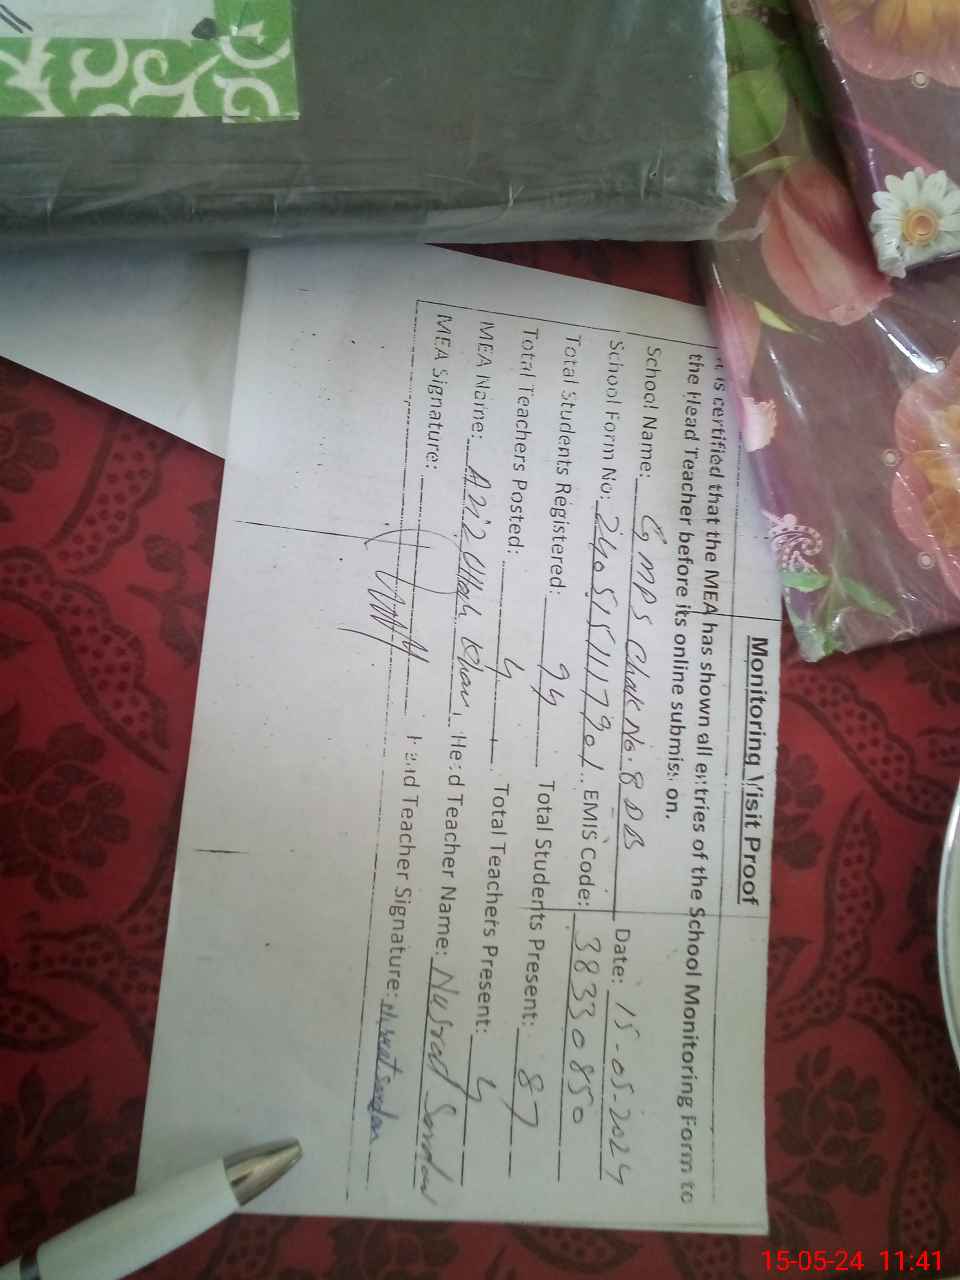 Monitoring Visit Proof
It is certified that the MEA has shown all entries of the School Monitoring Form to
the Head Teacher before its online submission.
School Name: GMPS Chak No. 8 DB Date: 15-05-2024
School Form No: 24051511790 EMIS Code: 38330850
Total Students Registered: 94 Total Students Present: 87
Total Teachers Posted: 4 Total Teachers Present: 4
MEA Name: Aziz Ullah Khan Head Teacher Name: Nusrat Sardar
MEA Signature: Head Teacher Signature: Nusrat Sardar
15-05-24 11:41